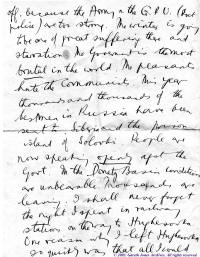 off, because the Army & the G.P.U. (Soviet
police) are too strong. The winter is going
to be one of great suffering there and
starvation. The Government is the most
brutal in the world. The peasants
hate the Communists. This year
thousands and thousands of the
best men in Russia have been
sent to Siberia and the prison
island of Solovki. People are
now speaking openly against the
Govt. In the Donetz Basin conditions
are unbearable. Thousands are
leaving. I shall never forget
the night I spent in a railway
station on the way to Hughesovka.
One reason why I left Hughesovka
so quickly was that all I could